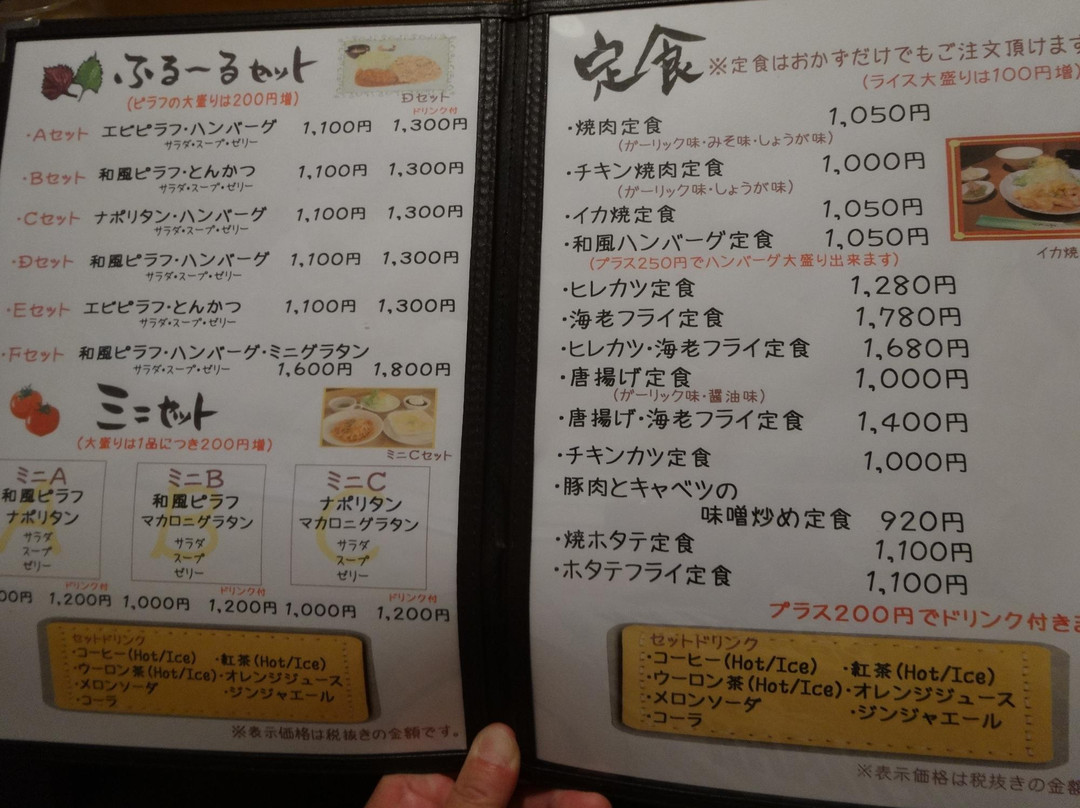 ふる〜るセット
(ピラフの大盛りは200円増)
Dセット
ドリンク付
・Aセット エビピラフ・ハンバーグ 1,100円 1,300円
サラダ・スープ・ゼリー
・Bセット 和風ピラフ・とんかつ 1,100円 1,300円
サラダ・スープ・ゼリー
・Cセット ナポリタン・ハンバーグ 1,100円 1,300円
サラダ・スープ・ゼリー
・Dセット 和風ピラフ・ハンバーグ 1,100円 1,300円
サラダ・スープ・ゼリー
・Eセット エビピラフ・とんかつ 1,100円 1,300円
サラダ・スープ・ゼリー
・Fセット 和風ピラフ・ハンバーグ・ミニグラタン
サラダ・スープ・ゼリー 1,600円 1,800円
ミニセット
(大盛りは1品につき200円増)
ミニCセット
ミニA
和風ピラフ
ナポリタン
サラダ
スープ
ゼリー
ミニB
和風ピラフ
マカロニグラタン
サラダ
スープ
ゼリー
ミニC
ナポリタン
マカロニグラタン
サラダ
スープ
ゼリー
ドリンク付 ドリンク付 ドリンク付
00円 1,200円 1,000円 1,200円 1,000円 1,200円
セットドリンク
・コーヒー(Hot/Ice) ・紅茶(Hot/Ice)
・ウーロン茶(Hot/Ice)・オレンジジュース
・メロンソーダ ・ジンジャエール
・コーラ
※表示価格は税抜きの金額です。
定食 ※定食はおかずだけでもご注文頂けます
(ライス大盛りは100円増)
・焼肉定食 1,050円
(ガーリック味・みそ味・しょうが味)
・チキン焼肉定食 1,000円
(ガーリック味・しょうが味)
・イカ焼定食 1,050円
・和風ハンバーグ定食 1,050円
(プラス250円でハンバーグ大盛り出来ます)
イカ焼
・ヒレカツ定食 1,280円
・海老フライ定食 1,780円
・ヒレカツ・海老フライ定食 1,680円
・唐揚げ定食 1,000円
(ガーリック味・醤油味)
・唐揚げ・海老フライ定食 1,400円
・チキンカツ定食 1,000円
・豚肉とキャベツの
味噌炒め定食 920円
・焼ホタテ定食 1,100円
・ホタテフライ定食 1,100円
プラス200円でドリンク付きま
セットドリンク
・コーヒー(Hot/Ice) ・紅茶(Hot/Ice)
・ウーロン茶(Hot/Ice)・オレンジジュース
・メロンソーダ ・ジンジャエール
・コーラ
※表示価格は税抜きの金額